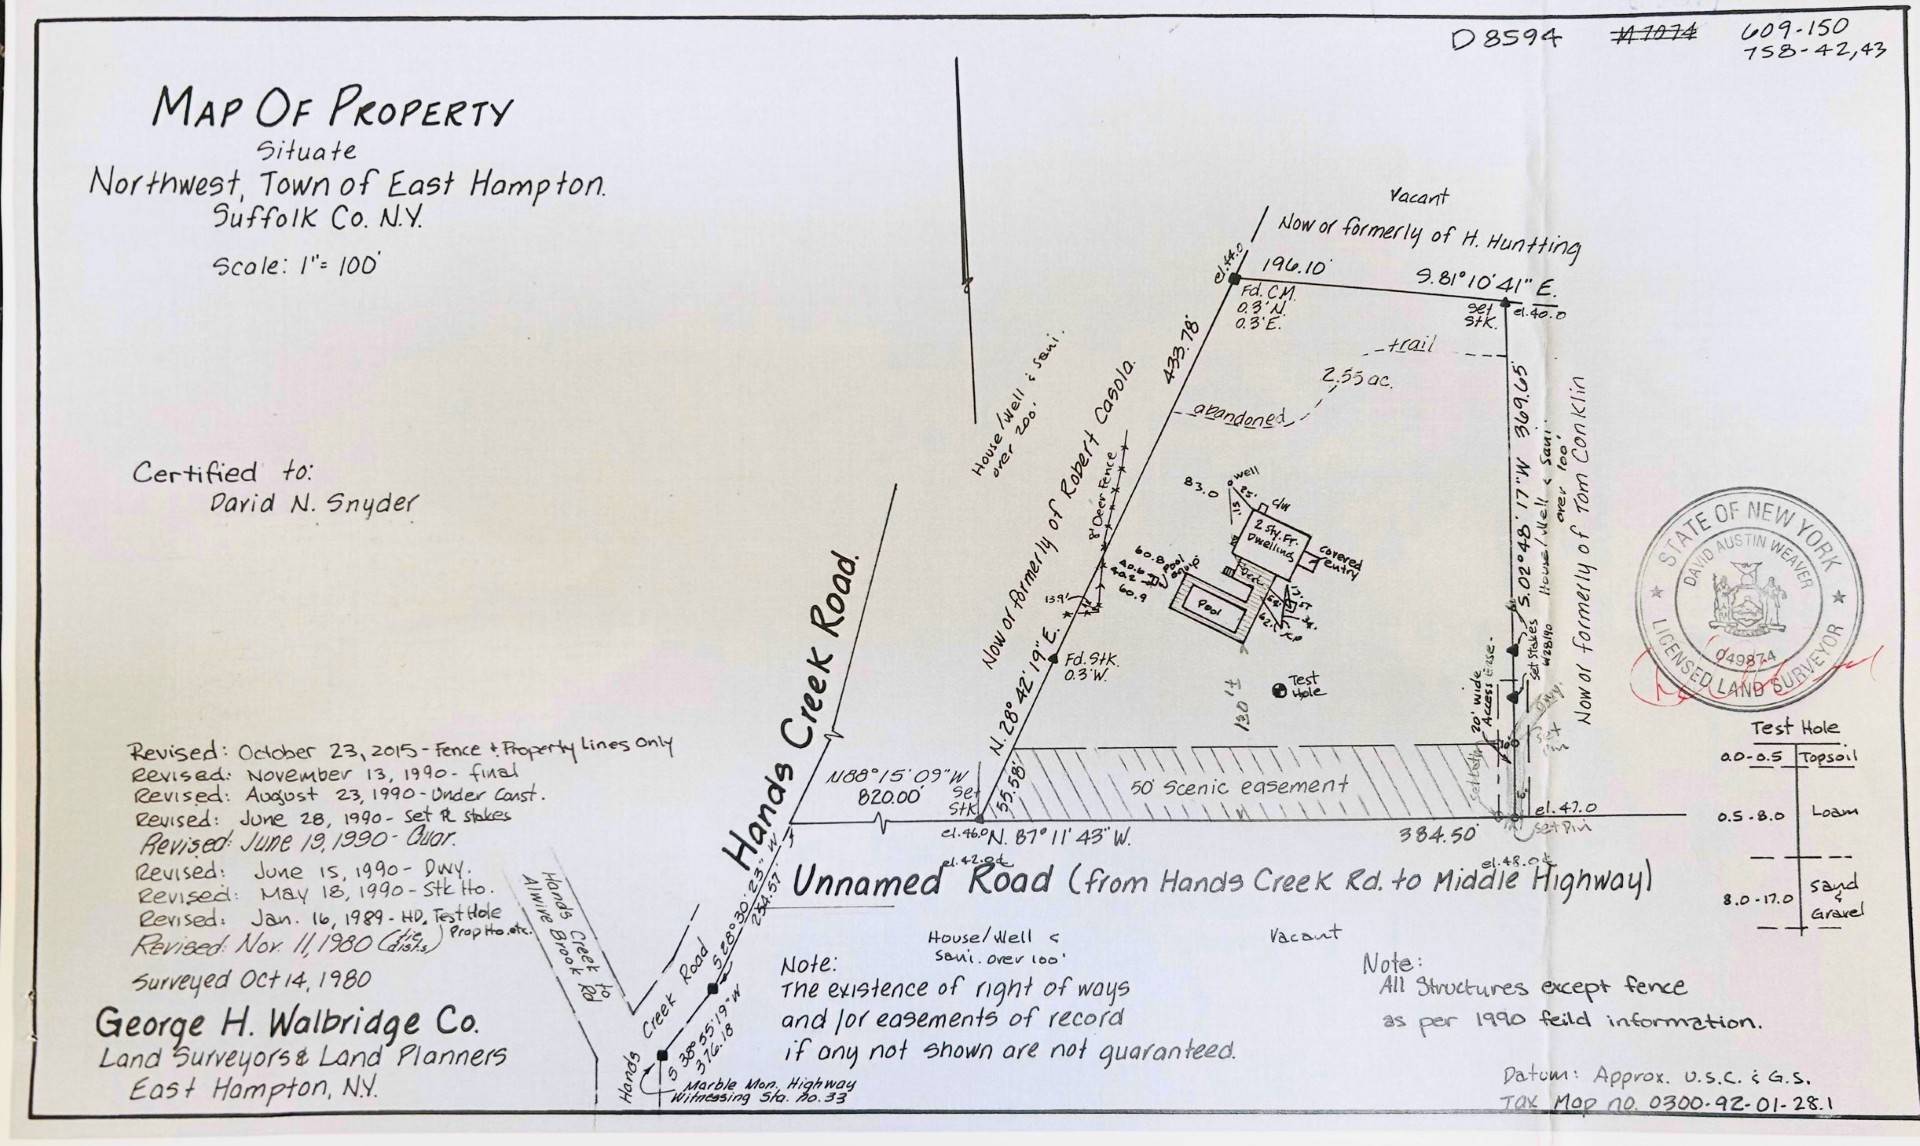 D 8594 #7074 609-150
758-42,43
MAP OF PROPERTY
Situate
Northwest, Town of East Hampton.
Suffolk Co. N.Y.
Scale: 1"= 100'
Certified to:
David N. Snyder
Revised: October 23, 2015 - Fence & Property Lines Only
Revised: November 13, 1990 - final
Revised: August 23, 1990 - Under Const.
Revised: June 28, 1990 - Set PL stakes
Revised: June 19, 1990 - Guar.
Revised: June 15, 1990 - Dwy.
Revised: May 18, 1990 - Stk Ho.
Revised: Jan. 16, 1989 - HD, Test Hole
Prop Ho. etc.
Revised: Nov. 11, 1980 (tie dists)
Surveyed Oct 14, 1980
George H. Walbridge Co.
Land Surveyors & Land Planners
East Hampton, N.Y.
Vacant
Now or formerly of H. Huntting
el. 44.0
196.10'
S. 81° 10' 41" E.
Fd. C.M.
0.3' N.
0.3' E.
Set
Stk.
el. 40.0
trail
2.55 ac.
abandoned
433.78'
House/Well & Sani.
over 200'
Now or formerly of Robert Casola.
8' Deer Fence
N. 28° 42' 19" E.
13.9'
Fd. Stk.
0.3' W.
83.0
well
25'
15'
C/W
2 Sty. Fr.
Dwelling
Covered
entry
Deck
Pool
60.8
40.6
40.2
60.9
Pool
equip
130'±
Test
Hole
S. 02° 48' 17" W 369.65'
House/Well & Sani.
over 100'
Now or formerly of Tom Conklin
Set Stakes
W28190
20' wide
Access Ease.
Dwy.
Set
Pin
STATE OF NEW YORK
DAVID AUSTIN WEAVER
049874
LICENSED LAND SURVEYOR
Test Hole
0.0-0.5 Topsoil
0.5-8.0 Loam
8.0-17.0 Sand & Gravel
Hands Creek Road.
N88° 15' 09" W
820.00'
Set
Stk
55.58'
50' Scenic easement
el. 46.0
N. 87° 11' 43" W.
384.50'
el. 47.0
Set Pin
el. 42.0±
el. 48.0±
Unnamed Road (from Hands Creek Rd. to Middle Highway)
S 28° 30' 23" W
254.57'
Hands Creek to
Alewive Brook Rd
Hands Creek Road
S 38° 55' 19" W
376.18
Marble Mon. Highway
Witnessing Sta. no. 33
House/Well &
Sani. over 100'
Vacant
Note:
The existence of right of ways
and/or easements of record
if any not shown are not guaranteed.
Note:
All Structures except fence
as per 1990 feild information.
Datum: Approx. U.S.C. & G.S.
Tax Map no. 0300-92-01-28.1